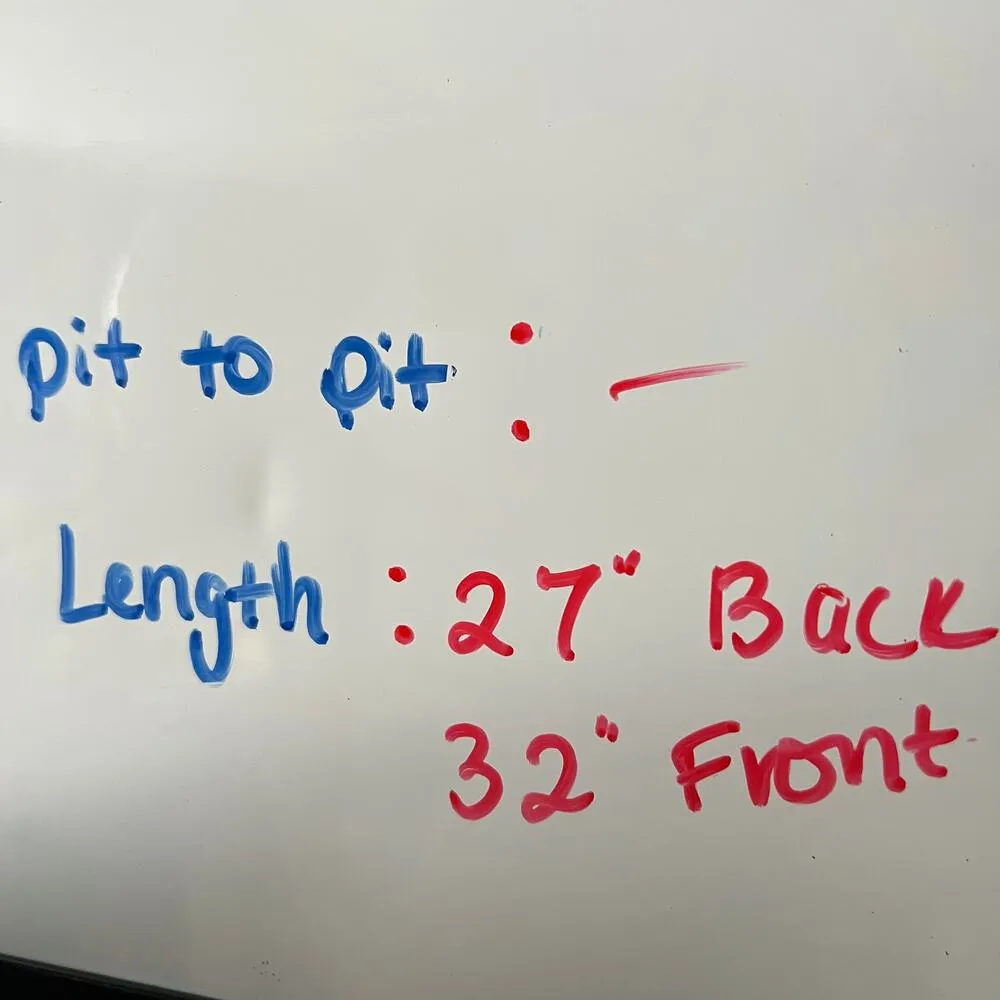 pit to pit : —
Length : 27" Back
32" Front